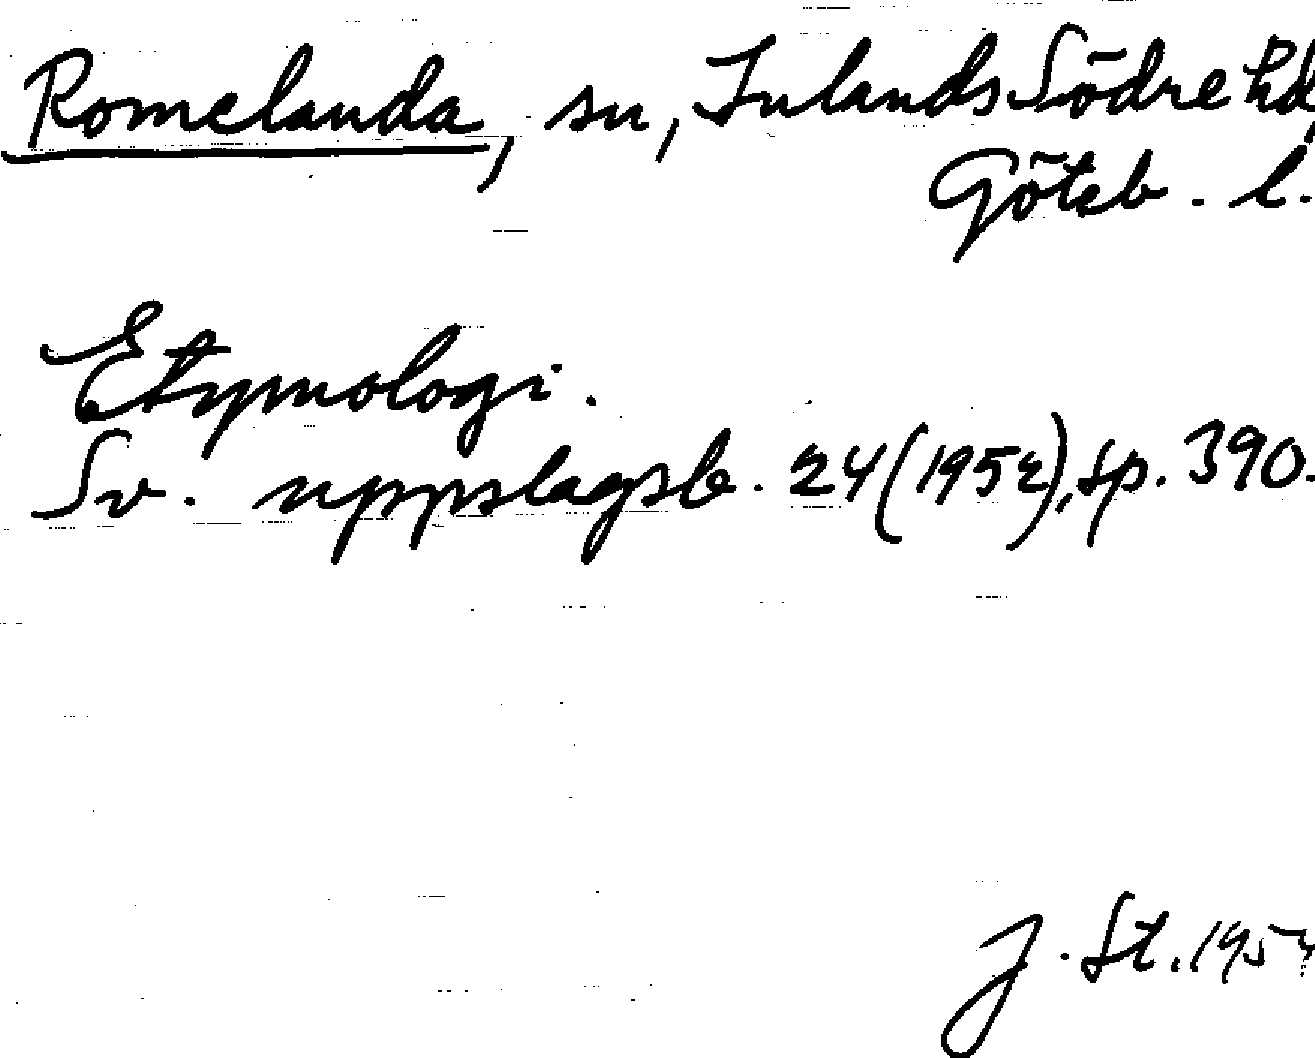 Romelanda, sn, Inlands Södre hd,
Göteb. l.
Etymologi.
Sv. uppslagsb. 24 (1952), sp. 390.
J. St.